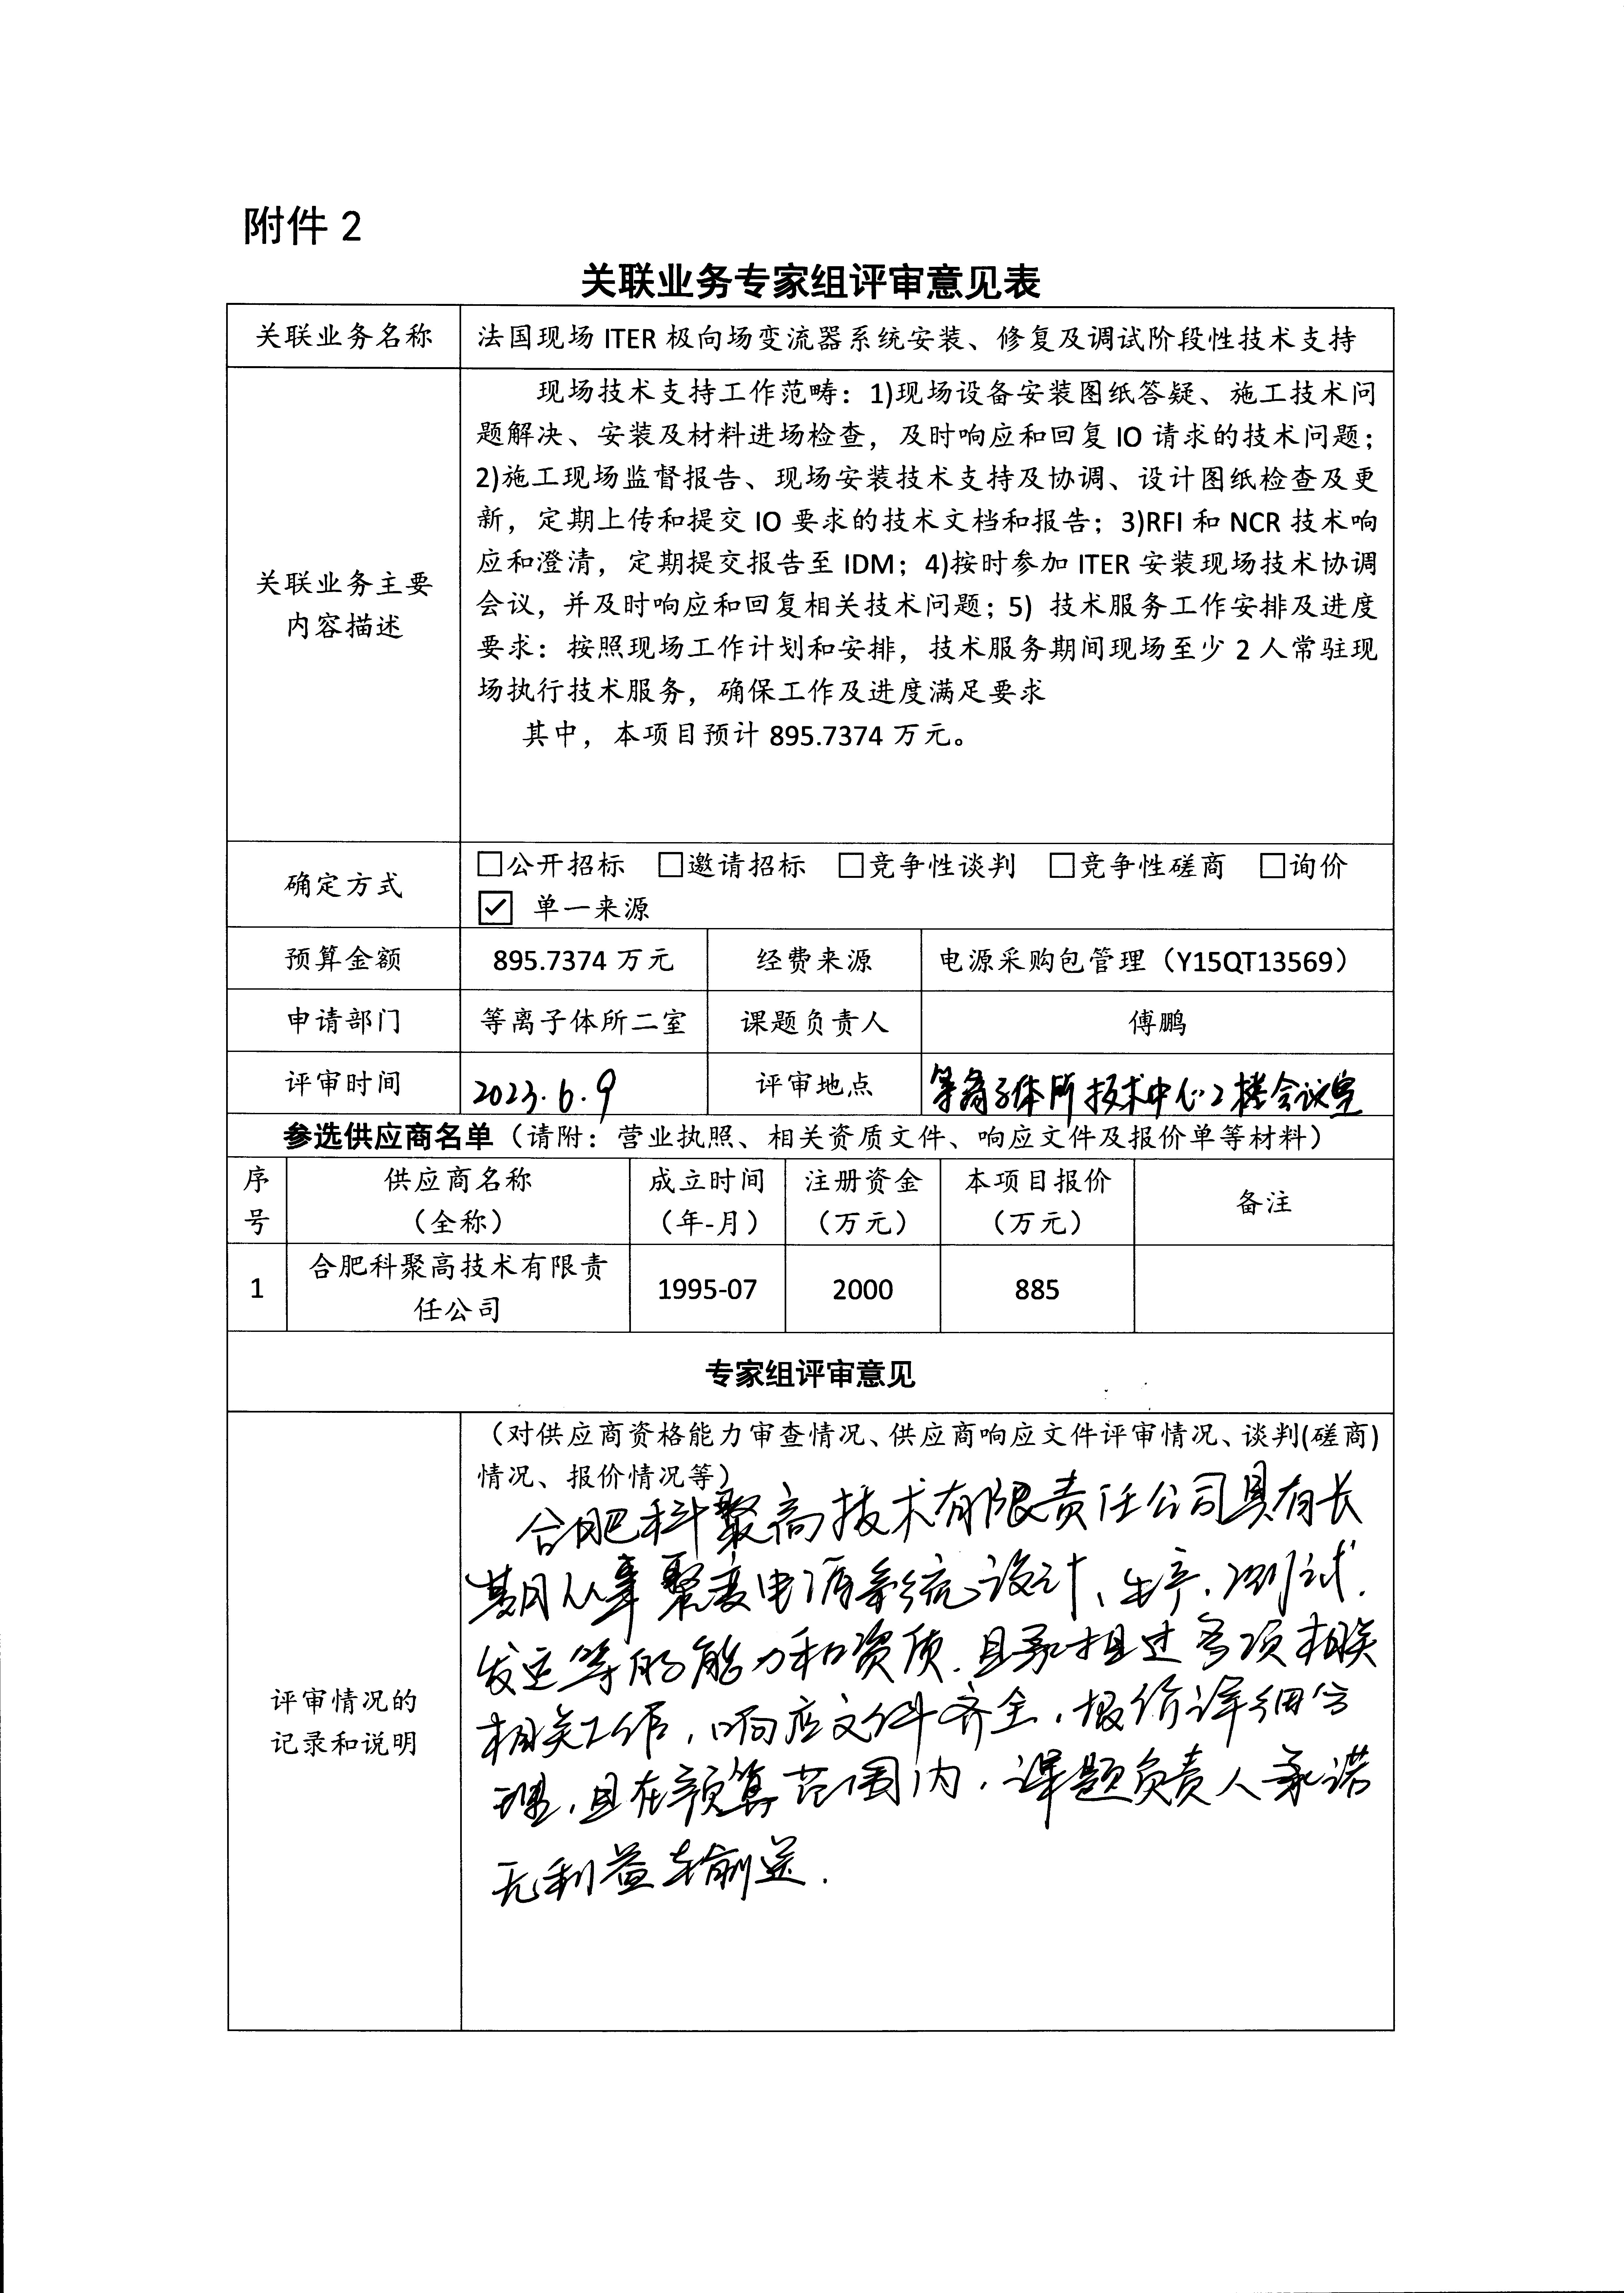 附件 2
关联业务专家组评审意见表
关联业务名称 法国现场 ITER 极向场变流器系统安装、修复及调试阶段性技术支持
关联业务主要
内容描述
现场技术支持工作范畴：1)现场设备安装图纸答疑、施工技术问
题解决、安装及材料进场检查，及时响应和回复 IO 请求的技术问题；
2)施工现场监督报告、现场安装技术支持及协调、设计图纸检查及更
新，定期上传和提交 IO 要求的技术文档和报告；3)RFI 和 NCR 技术响
应和澄清，定期提交报告至 IDM；4)按时参加 ITER 安装现场技术协调
会议，并及时响应和回复相关技术问题；5) 技术服务工作安排及进度
要求：按照现场工作计划和安排，技术服务期间现场至少 2 人常驻现
场执行技术服务，确保工作及进度满足要求
其中，本项目预计 895.7374 万元。
确定方式
□公开招标 □邀请招标 □竞争性谈判 □竞争性磋商 □询价
☑ 单一来源
预算金额 895.7374 万元 经费来源 电源采购包管理（Y15QT13569）
申请部门 等离子体所二室 课题负责人 傅鹏
评审时间 2023.6.9 评审地点 等离子体所技术中心2楼会议室
参选供应商名单（请附：营业执照、相关资质文件、响应文件及报价单等材料）
序
号
供应商名称
（全称）
成立时间
（年-月）
注册资金
（万元）
本项目报价
（万元）
备注
1
合肥科聚高技术有限责
任公司
1995-07 2000 885
专家组评审意见
评审情况的
记录和说明
（对供应商资格能力审查情况、供应商响应文件评审情况、谈判(磋商)
情况、报价情况等）
合肥科聚高技术有限责任公司具有长
期从事聚变电源系统设计、生产、测试、
发运等的能力和资质，且承担过多项相关
相关工作，响应文件齐全，报价详细合
理，且在预算范围内，课题负责人承诺
无利益输送.